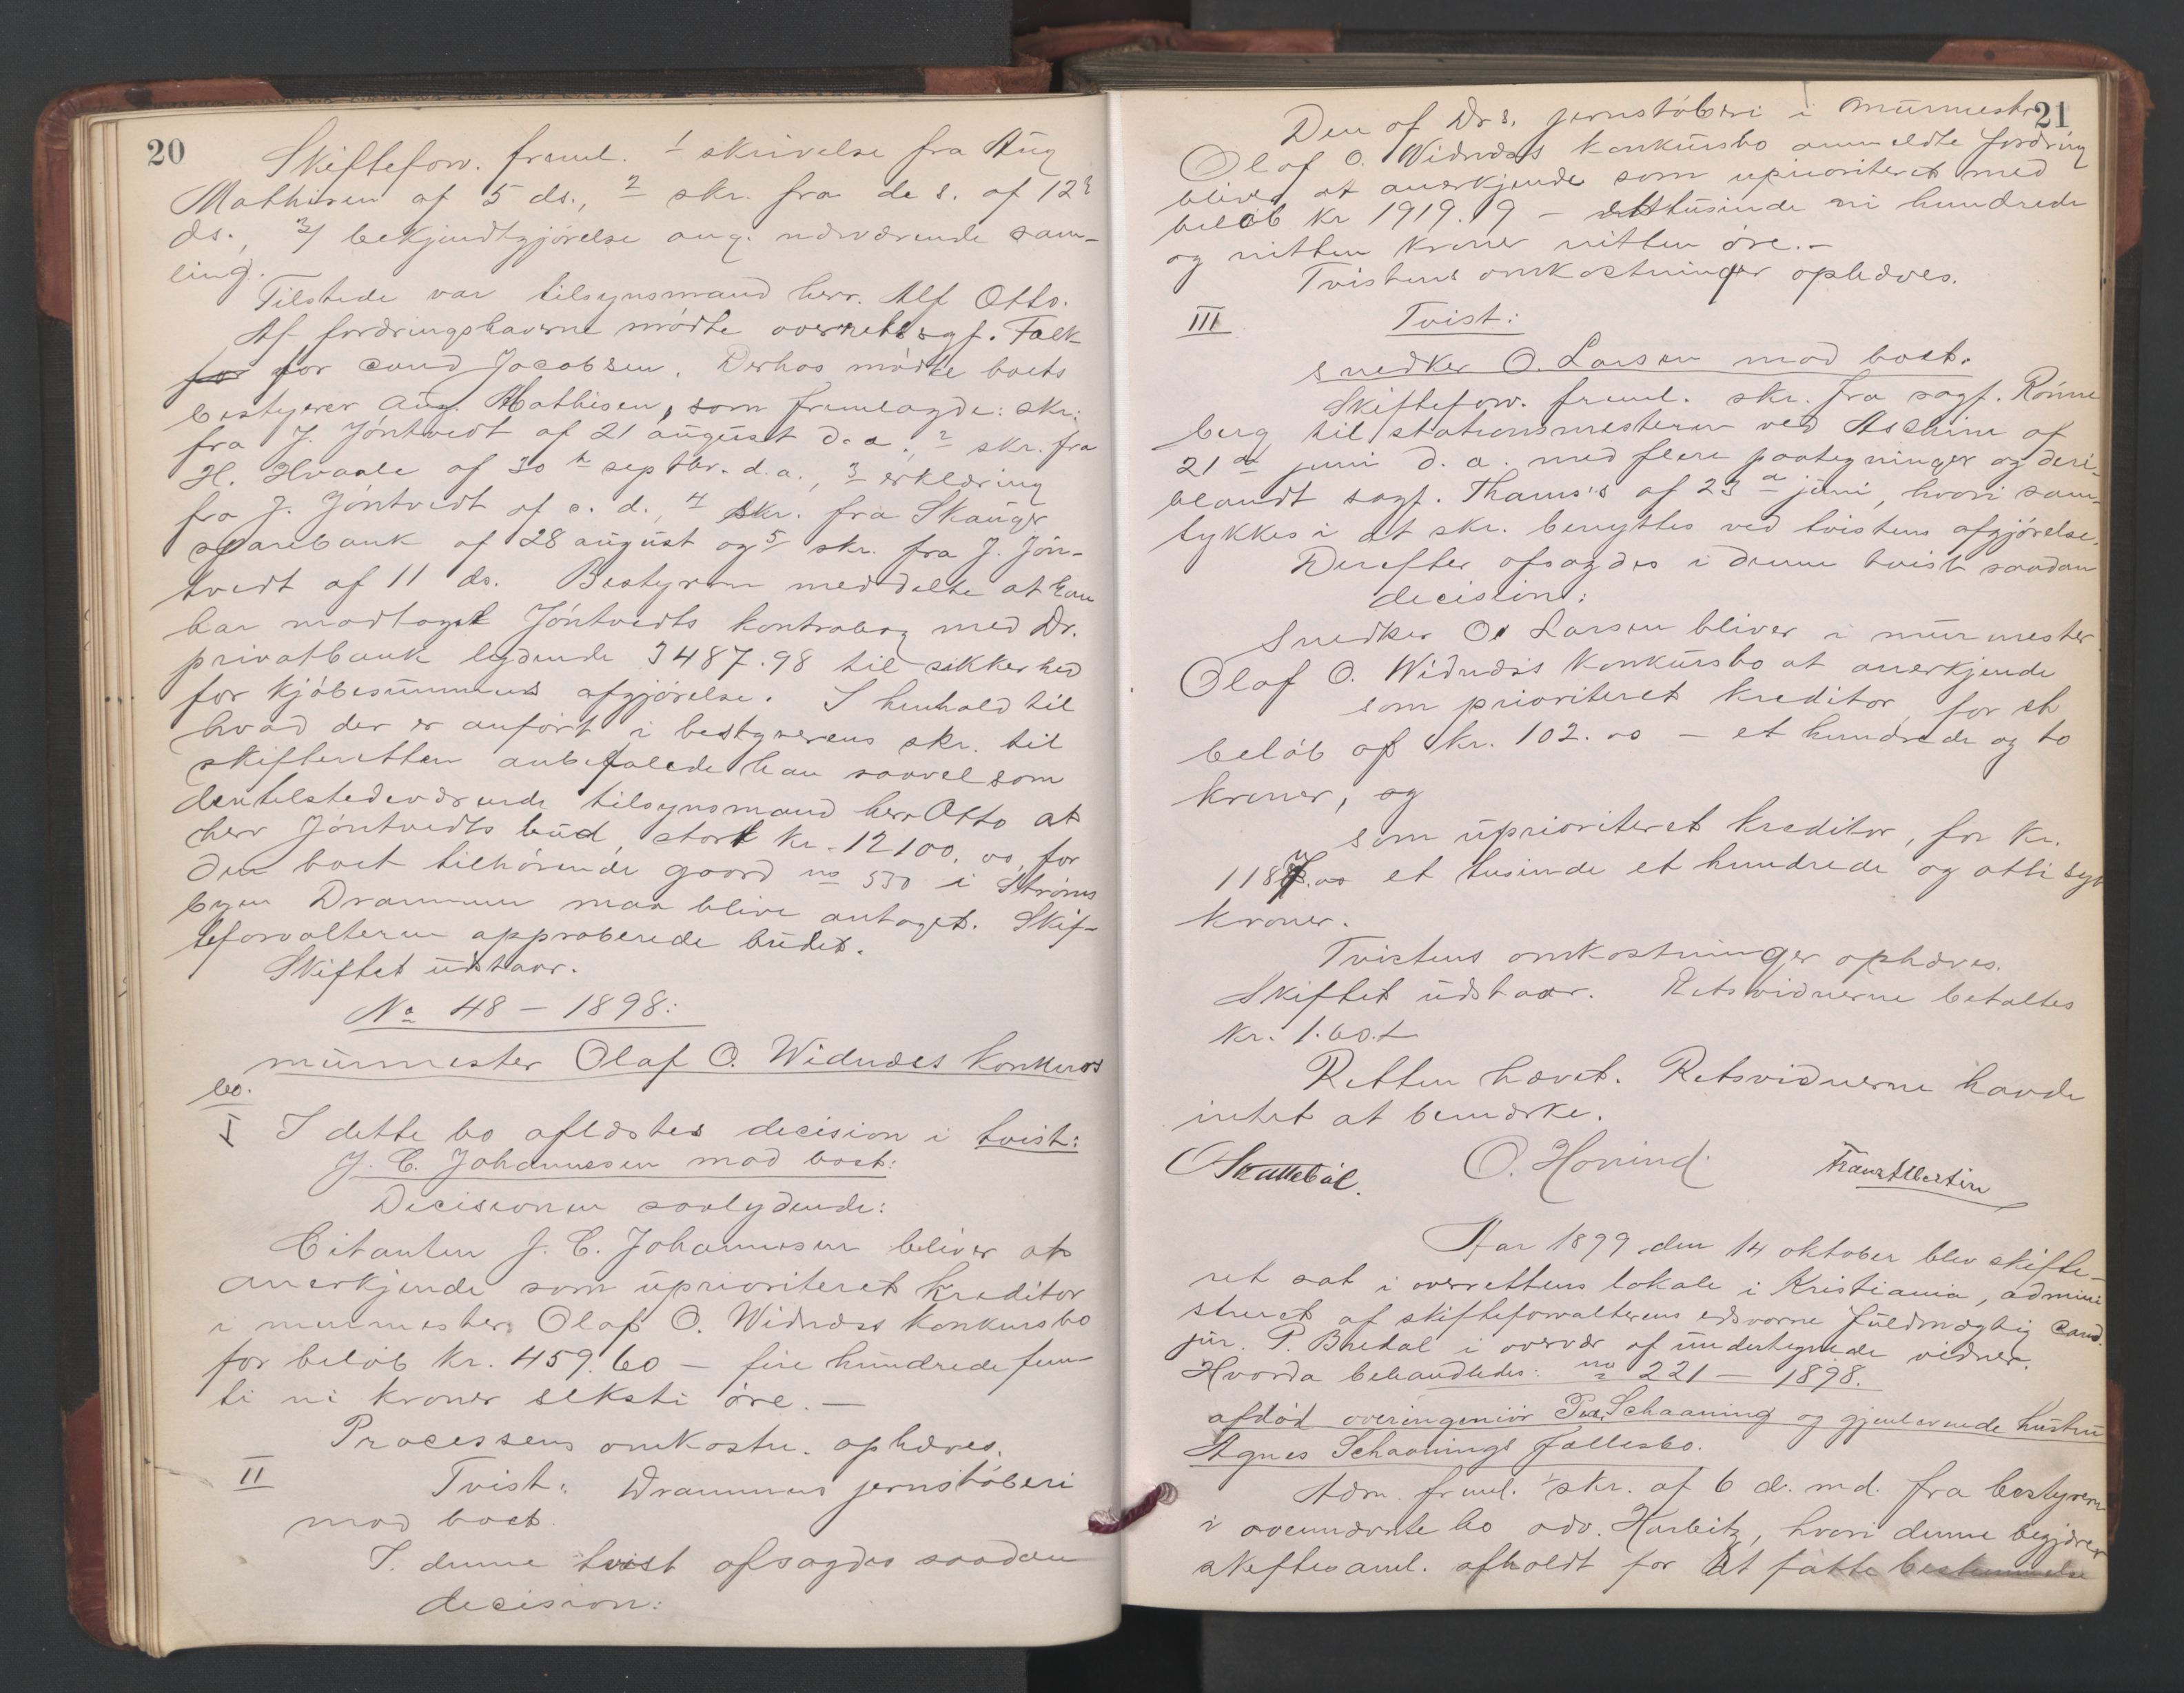 20
Skifteforv. freml. 1 skrivelse fra Aug
Mathisen af 5 ds., 2 skr. fra de s. af 12te
ds., 3/ bekjendtgjørelse ang. nærværende sam-
ling.
Tilstede var tilsynsmand herr. Alf Otto.
Af fordringshaverne mødte overretssagf. Falk
for for cand Jacobsen. Derhos mødte boets
bestyrer Aug. Mathisen, som fremlagde: skr:
fra J. Jöntvedt af 21 august d. a., 2 skr. fra
H. Hvaale af 30te septbr. d. a., 3 erklæring
fra J. Jöntvedt af s. d., 4 skr. fra Skauger
sparebank af 28 august og 5/ skr. fra J. Jön-
tvedt af 11 ds. Bestyreren meddelte at han
har modtaget Jöntvedts kontrabog med Dr.
privatbank lydende 3487.98 til sikkerhed
for kjöbesummens afgjörelse. I henhold til
hvad der er anført i bestyrerens skr. til
skifteretten anbefalede han saavel som
den tilstedeværende tilsynsmand herr Otto at
herr Jöntvedts bud, stort kr. 12100,00, for
den boet tilhørende gaard no 530 i Strøms
byen Drammen maa blive antaget. Skif-
teforvalteren approberede budet.
Skiftet udstaar.
No 48 - 1898:
murmester Olaf O. Widnæs konkurs
bo.
I I dette bo aflæstes decision i tvist:
J. C. Johannessen mod boet:
Decisionen saalydende:
Citanten J. C. Johannessen bliver at
anerkjende som uprioriteret kreditor
i murmester Olaf O. Widnæss konkursbo
for beløb kr. 459.60 - fire hundrede fem-
ti ni kroner seksti øre. -
Processens omkostn. ophæves.
II Tvist: Drammens jernstøberi
mod boet.
I denne tvist afsagdes saadan
decision:
21
Den af Drs. jernstøberi i murmester
Olaf O. Widnæs's konkursbo anmeldte fordring
bliver at anerkjende som uprioriteret med
beløb kr 1919.19 - ettusinde ni hundrede
og nitten kroner nitten øre. -
Tvistens omkostninger ophæves.
III Tvist:
snedker O. Larsen mod boet.
Skifteforv. freml. skr. fra sagf. Rönne
berg til stationsmesteren ved Aschim af
21de juni d. a. med flere paategninger og deri-
blandt sagf. Thams's af 23de juni, hvori sam-
tykkes i at skr. benyttes ved tvistens afgjørelse.
Derefter afsagdes i denne tvist saadan
decision:
Snedker O. Larsen bliver i murmester
Olaf O. Widnæs's konkursbo at anerkjende
som prioriteret kreditor, for et
beløb af kr. 102.00 - et hundrede og to
kroner, og
som uprioriteret kreditor, for kr.
1187.00 et tusinde et hundrede og otti syv
kroner.
Tvistens omkostninger ophæves.
Skiftet udstaar. Retsvidnerne betaltes
kr. 1.60.
Retten hævet. Retsvidnerne havde
intet at bemærke.
Skattebøl. O. Horrind. Franz Albertsen
Aar 1899 den 14 oktober blev skifte-
ret sat i overrettens lokale i Kristiania, admini
streret af skifteforvalterens edsvorne fuldmægtig Cand.
jur. P. Bredal i overvær af undertegnede vidner.
Hvorda behandledes: no 221 - 1898.
afdød overingeniør Schaaning og gjenlevende hustru
Agnes Schaanings fællesbo.
Adm. freml. 1/ skr. af 6 d. md. fra bestyreren
i ovennævnte bo adv. Harbitz, hvori denne begjærer
skiftesaml. afholdt for at fatte bestemmelse